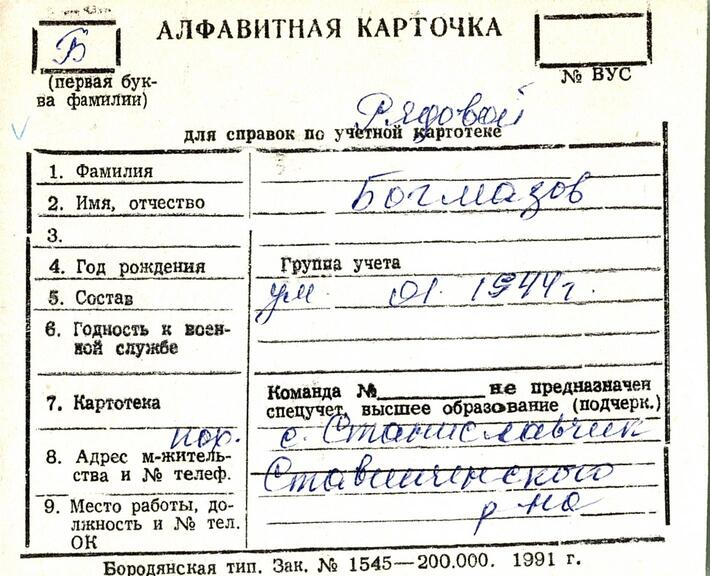 Б
АЛФАВИТНАЯ КАРТОЧКА
(первая бук-
ва фамилии)
№ ВУС
Рядовой
для справок по учетной картотеке
1. Фамилия
2. Имя, отчество
Богмазов
3.
4. Год рождения
Группа учета
5. Состав
ум. 01. 1944 г.
6. Годность к воен-
ной службе
7. Картотека
Команда №________не предназначен
спецучет, высшее образование (подчерк.)
пох. с. Станиславчик
8. Адрес м-житель-
ства и № телеф.
Ставищенского
р-на
9. Место работы, до-
лжность и № тел.
ОК
Бородянская тип. Зак. № 1545—200.000. 1991 г.